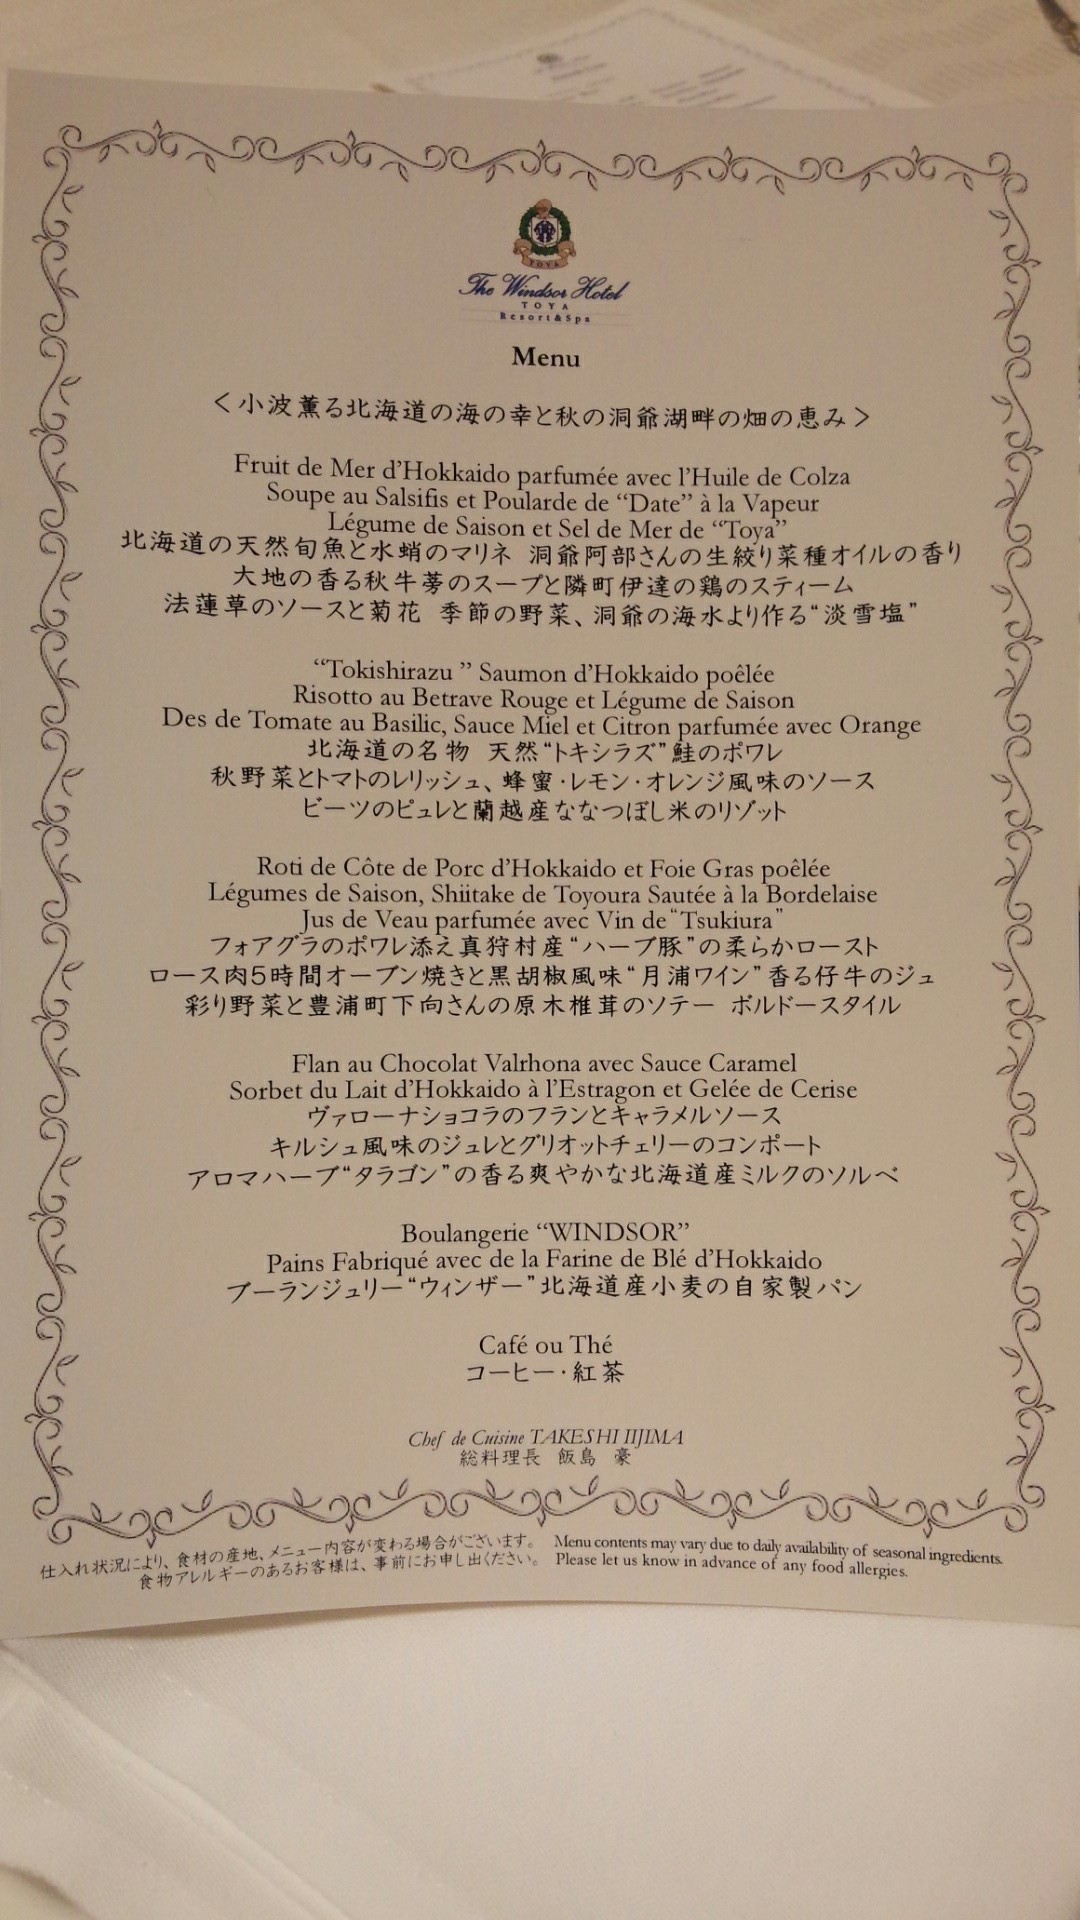 TOYA
The Windsor Hotel
TOYA
Resort&Spa
Menu
＜小波薫る北海道の海の幸と秋の洞爺湖畔の畑の恵み＞
Fruit de Mer d’Hokkaido parfumée avec l’Huile de Colza
Soupe au Salsifis et Poularde de “Date” à la Vapeur
Légume de Saison et Sel de Mer de “Toya”
北海道の天然旬魚と水蛸のマリネ 洞爺阿部さんの生絞り菜種オイルの香り
大地の香る秋牛蒡のスープと隣町伊達の鶏のスティーム
法蓮草のソースと菊花 季節の野菜、洞爺の海水より作る“淡雪塩”
“Tokishirazu ” Saumon d’Hokkaido poêlée
Risotto au Betrave Rouge et Légume de Saison
Des de Tomate au Basilic, Sauce Miel et Citron parfumée avec Orange
北海道の名物 天然“トキシラズ”鮭のポワレ
秋野菜とトマトのレリッシュ、蜂蜜・レモン・オレンジ風味のソース
ビーツのピュレと蘭越産ななつぼし米のリゾット
Roti de Côte de Porc d’Hokkaido et Foie Gras poêlée
Légumes de Saison, Shiitake de Toyoura Sautée à la Bordelaise
Jus de Veau parfumée avec Vin de “Tsukiura”
フォアグラのポワレ添え真狩村産“ハーブ豚”の柔らかロースト
ロース肉5時間オーブン焼きと黒胡椒風味“月浦ワイン”香る仔牛のジュ
彩り野菜と豊浦町下向さんの原木椎茸のソテー ボルドースタイル
Flan au Chocolat Valrhona avec Sauce Caramel
Sorbet du Lait d’Hokkaido à l’Estragon et Gelée de Cerise
ヴァローナショコラのフランとキャラメルソース
キルシュ風味のジュレとグリオットチェリーのコンポート
アロマハーブ“タラゴン”の香る爽やかな北海道産ミルクのソルベ
Boulangerie “WINDSOR”
Pains Fabriqué avec de la Farine de Blé d’Hokkaido
ブーランジュリー“ウィンザー”北海道産小麦の自家製パン
Café ou Thé
コーヒー・紅茶
Chef de Cuisine TAKESHI IIJIMA
総料理長 飯島 豪
仕入れ状況により、食材の産地、メニュー内容が変わる場合がございます。
食物アレルギーのあるお客様は、事前にお申し出ください。
Menu contents may vary due to daily availability of seasonal ingredients.
Please let us know in advance of any food allergies.